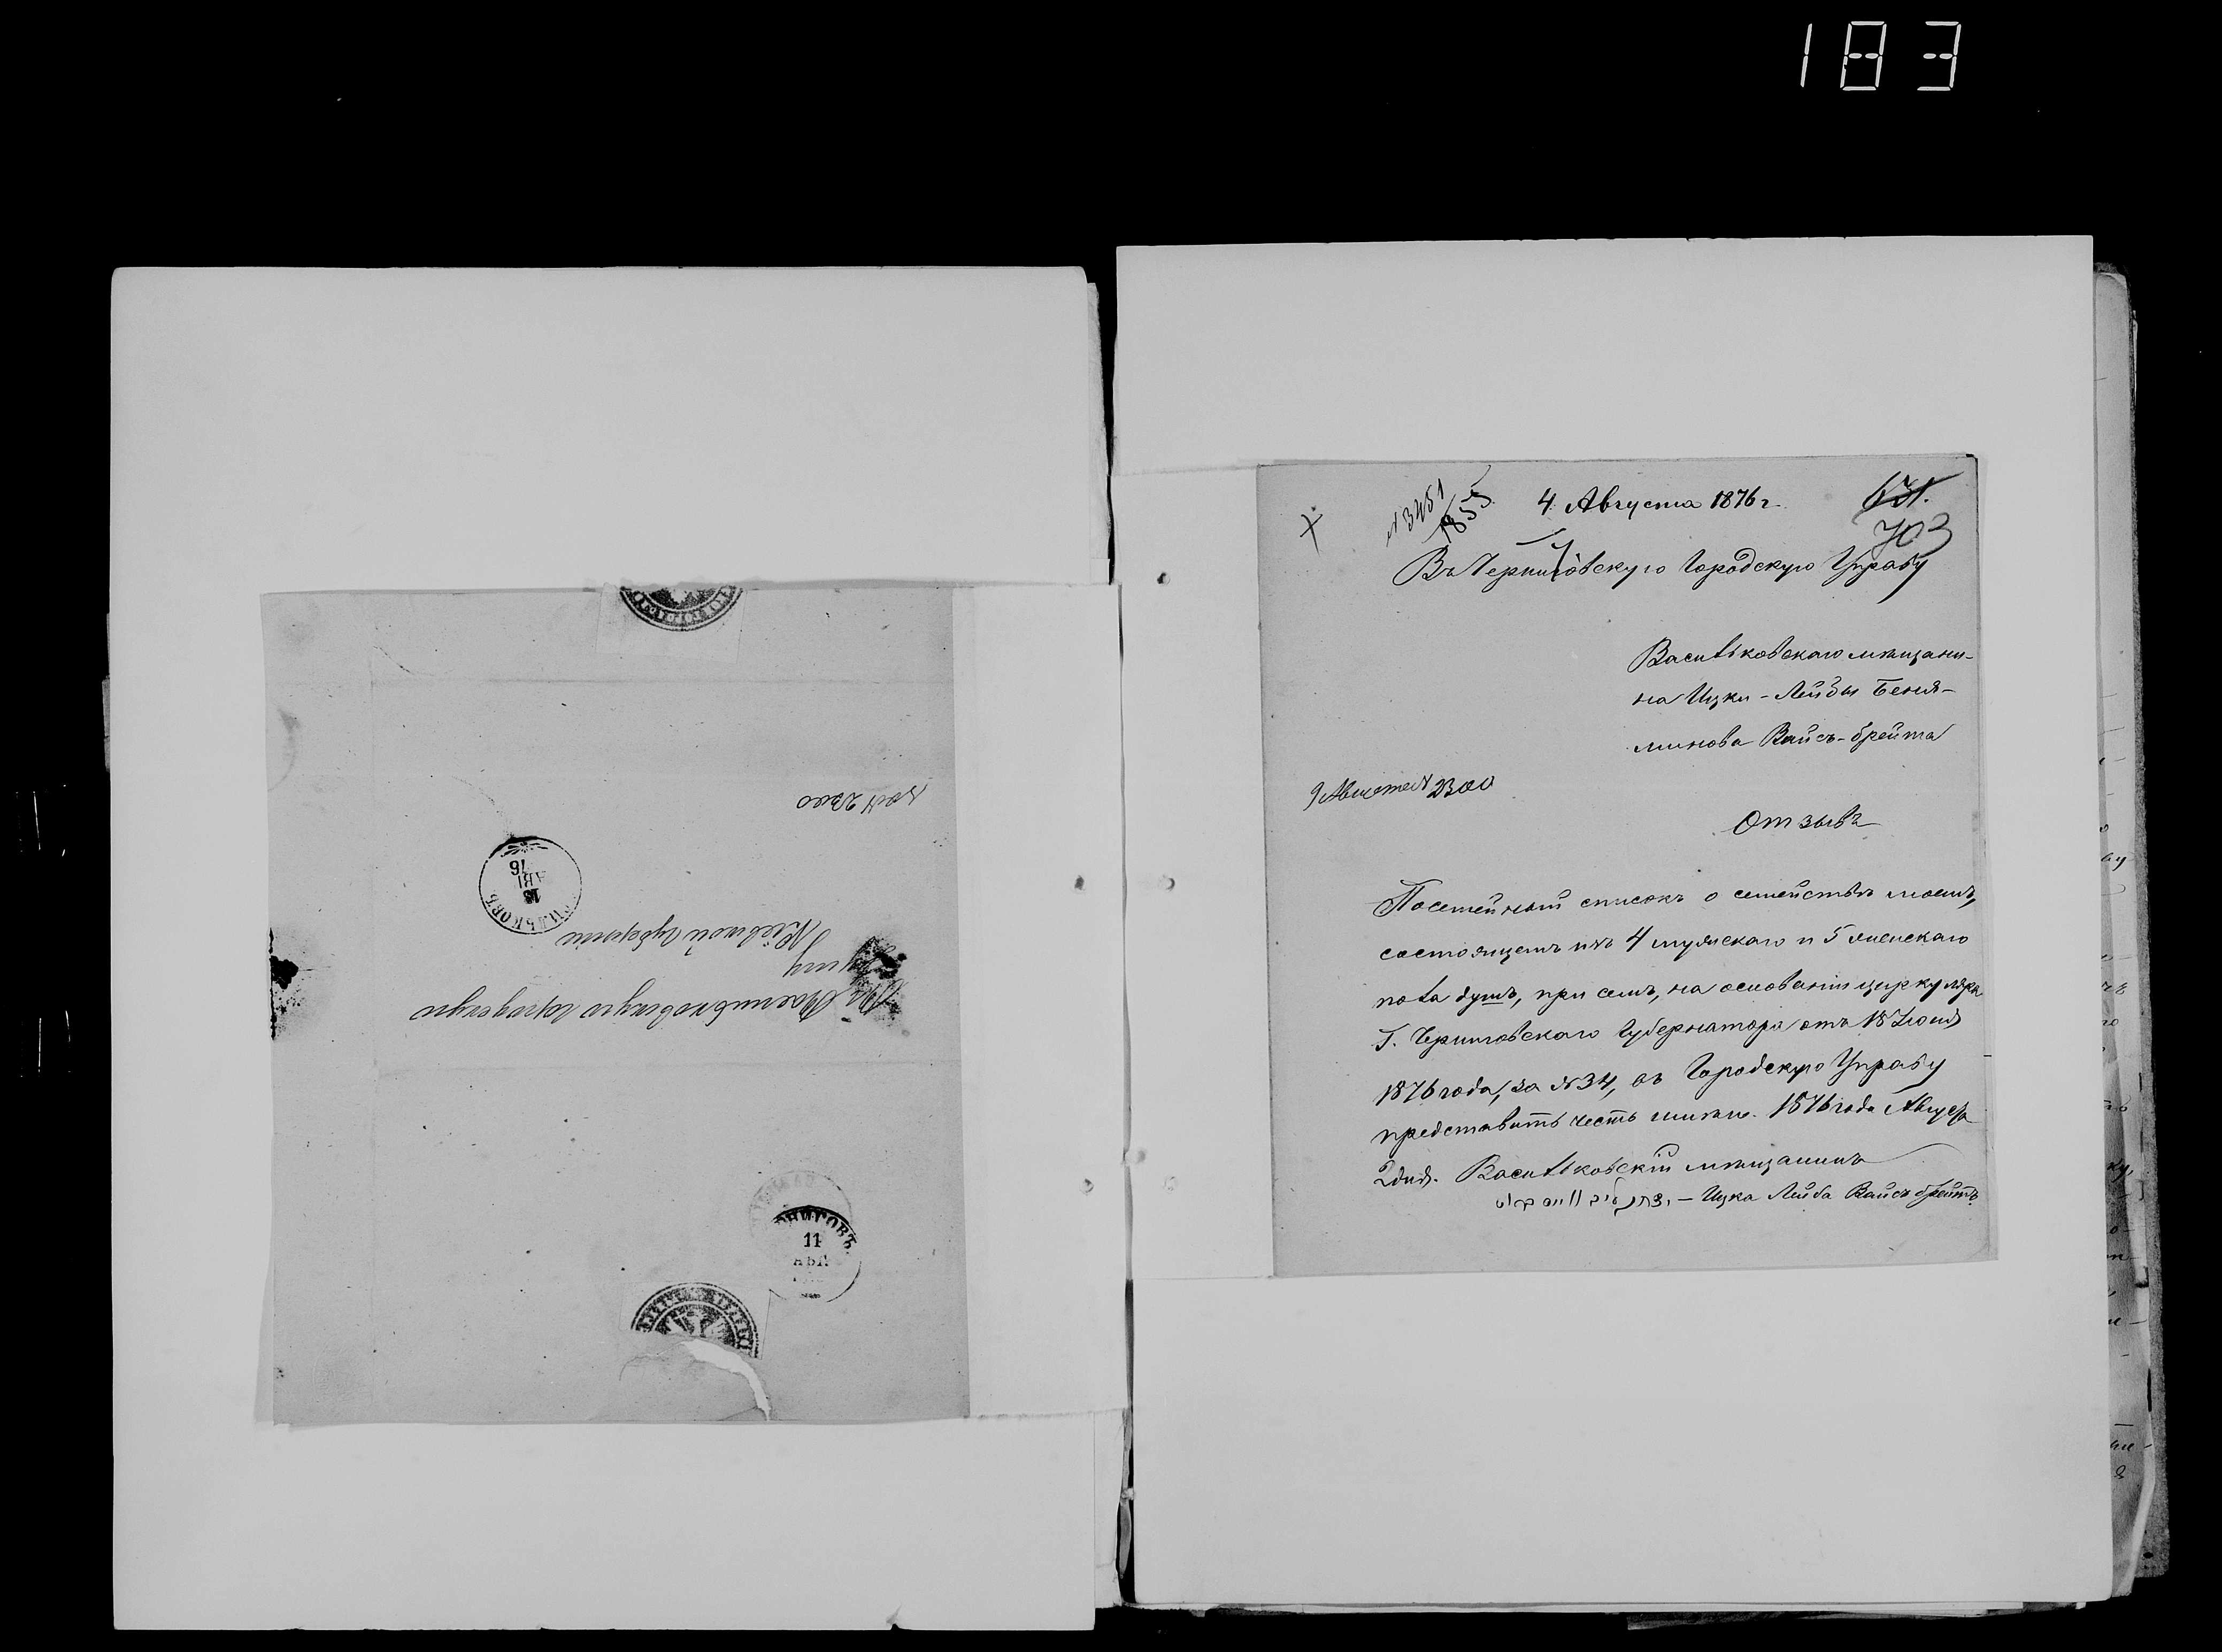 183
№ 3451
1855
4 Августа 1876 г.
703
Въ Черниговскую Городскую Управу
Васильковскаго мѣщани-
на Ицки-Лейбы Беня-
минова Вайсъ-брейта
9 Августа № 2300
Отзывъ
Посемейный списокъ о семействѣ моемъ,
состоящемъ изъ 4 мужскаго и 5 женскаго
пола душъ, при семъ, на основаніи циркуляра
Г. Черниговскаго Губернатора отъ 18 Іюня
1876 года, за № 34, въ Городскую Управу
представить честь имѣю. 1876 года Августа
2 дня. Васильковскій мѣщанинъ
— Ицка Лейба Вайсъ брейтъ
Въ Васильковскую городскую
Управу
Кіевской губерніи
№ 2300
13
АВГ
76
ЧЕРНИГОВЪ
11
АВГ